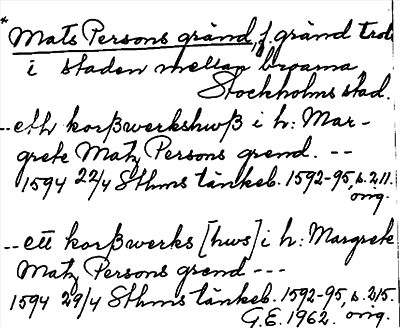 * Mats Persons gränd, f. gränd trol.
i staden mellan broarna
Stockholms stad.
-- eth korßwerkshwß i h: Mar-
grete Matz Persons grend. --
1594 22/4 Sthms tänkeb. 1592-95, s. 211.
orig.
-- ett korßwerks [hws] i h: Margrete
Matz Persons grend ---
1594 29/4 Sthms tänkeb. 1592-95, s. 215.
G.E. 1962. orig.